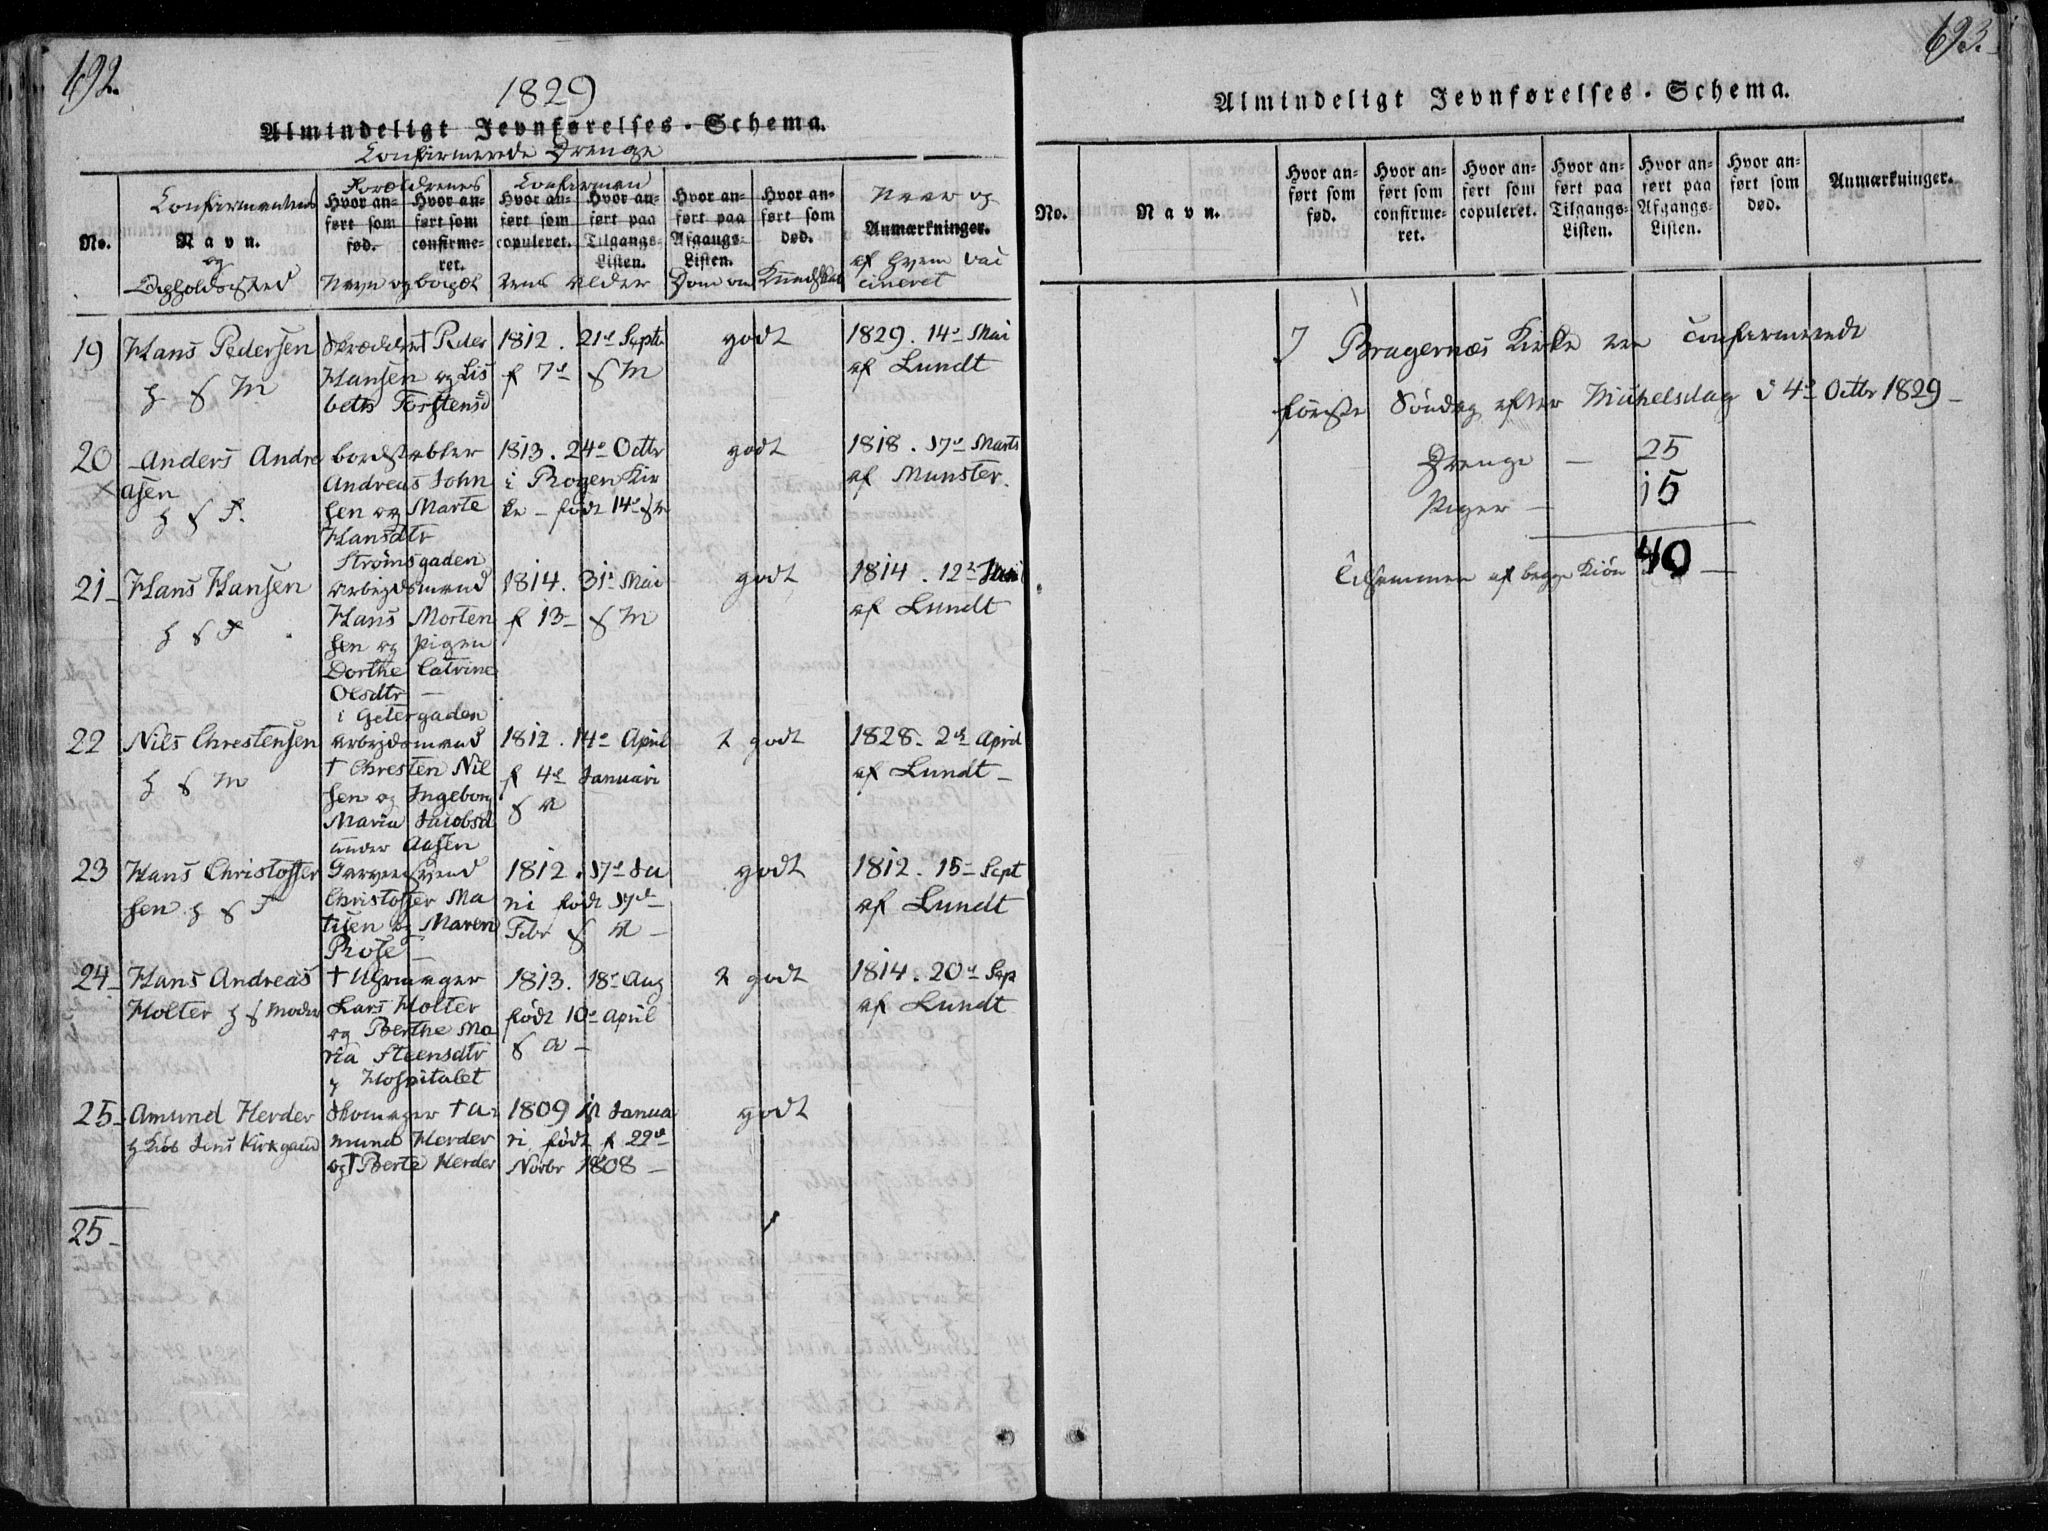 692.
1829
Almindeligt Jevnførelses-Schema.
Confirmerede Drenge
No.
Confirmantens
Navn.
og
Opholdssted
Forældrenes
Hvor anført som fød.
Hvor anført som confirmeret.
Navn og
Confirman
Hvor anført som copuleret.
Hvor anført paa Tilgangs-Listen.
tens Alder
Hvor anført paa Afgangs-Listen.
Hvor anført som død.
Dom om Kundskab
Naar og
Anmærkninger.
af hvem vac
cineret
19 Hans Pedersen
h f M
Skrædder † Peder
Hansen og Lis
beth Torstensd
1812. 21de Septb
f 7de f M
godt
1829. 14de Mai
af Lundt
20 Anders Andre
asen
h f F.
bordstabler
Andreas John
sen og Marte
Hansdtr
Strømsgaden
1813. 24de Octbr
i Kir
ke - født 14de
godt
1818. 17de Marts
af Munster.
21 Hans Hansen
h f F
Arbejdsmand
Hans Morten
sen og Pigen
Dorthe Catrine
Olsdtr
i Getergaden
1814. 31te Mai
f 13 - f M
godt
1814. 12te
af Lundt
22 Nils Chrestensen
h f M
Arbejdsmand
† Chresten Nil
sen og Ingeborg
Maria Jacobsd
under Aasen
1812. 14de April
f 4de Januari
f
godt
1828. 2den April
af Lundt
23 Hans Christoffer
sen h f F
Garversvend
Christoffer Ma
tisen og Maren
Rose
1812. 17de Ju
ni født 17de
Febr f
godt
1812. 15 - Sept
af Lundt
24 Hans Andreas
Holter h f Moder
† Uhrmager
Lars Holter
og Berthe Ma
ria Steensdtr
Hospitalet
1813. 18de Aug
født 10de April
f
godt
1814. 20de Sep
af Lundt
25 Amund Herder
h Jens Kirkgaard
Skomager † A
mund Herder
og † Berte Herder
1809 Janua
ri født f 22de
Novbr 1808
godt
25
693.
Almindeligt Jevnførelses-Schema.
No.
Navn.
Hvor anført som fød.
Hvor anført som confirmeret.
Hvor anført som copuleret.
Hvor anført paa Tilgangs-Listen.
Hvor anført paa Afgangs-Listen.
Hvor anført som død.
Anmærkninger.
I Bragernæs Kirke ere confirmerede
første Søndag efter Michelsdag d 4de Octbr 1829
Drenge - 25
Piger - 15
Tilsammen af begge Kiøn 40